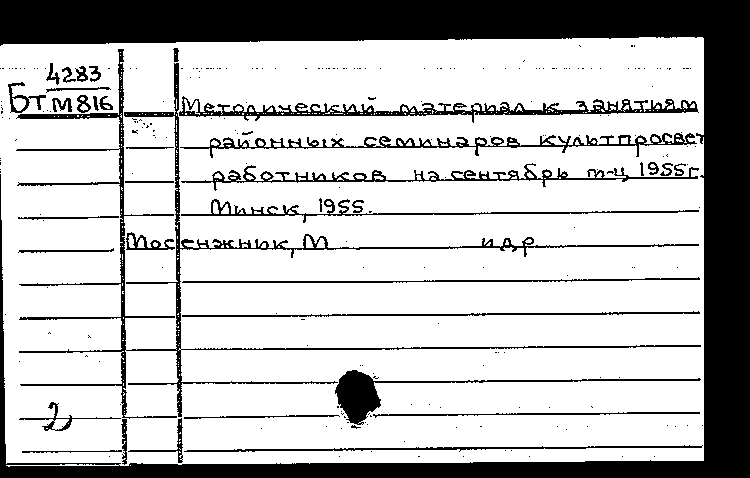 4283
Бт М816
Методический материал к занятиям
районных семинаров культпросвет
работников на сентябрь м-ц, 1955г.
Минск, 1955.
Мосенжник, М и др.
2